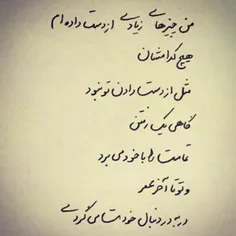 من چیزهای زیادی از دست داده ام
هیچ کدامشان
مثل از دست دادن تو نبود
گاهی یک رفتن
تمامت را با خود می برد
و تو تا آخر عمر
در به در دنبال خودت می گردی